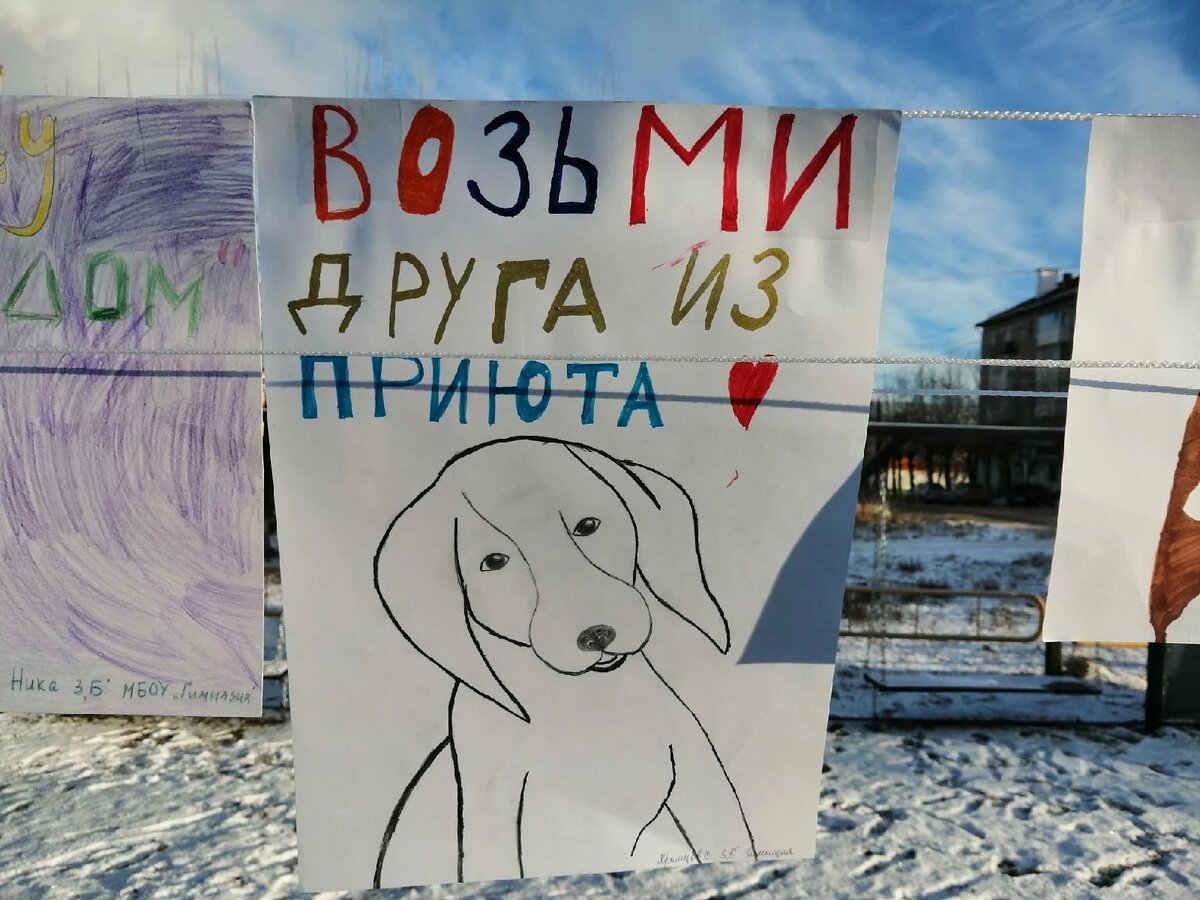 ДОМ"
Ника 3"Б" МБОУ "Гимназия"
ВОЗЬМИ
ДРУГА ИЗ
ПРИЮТА
3"Б" Гимназия